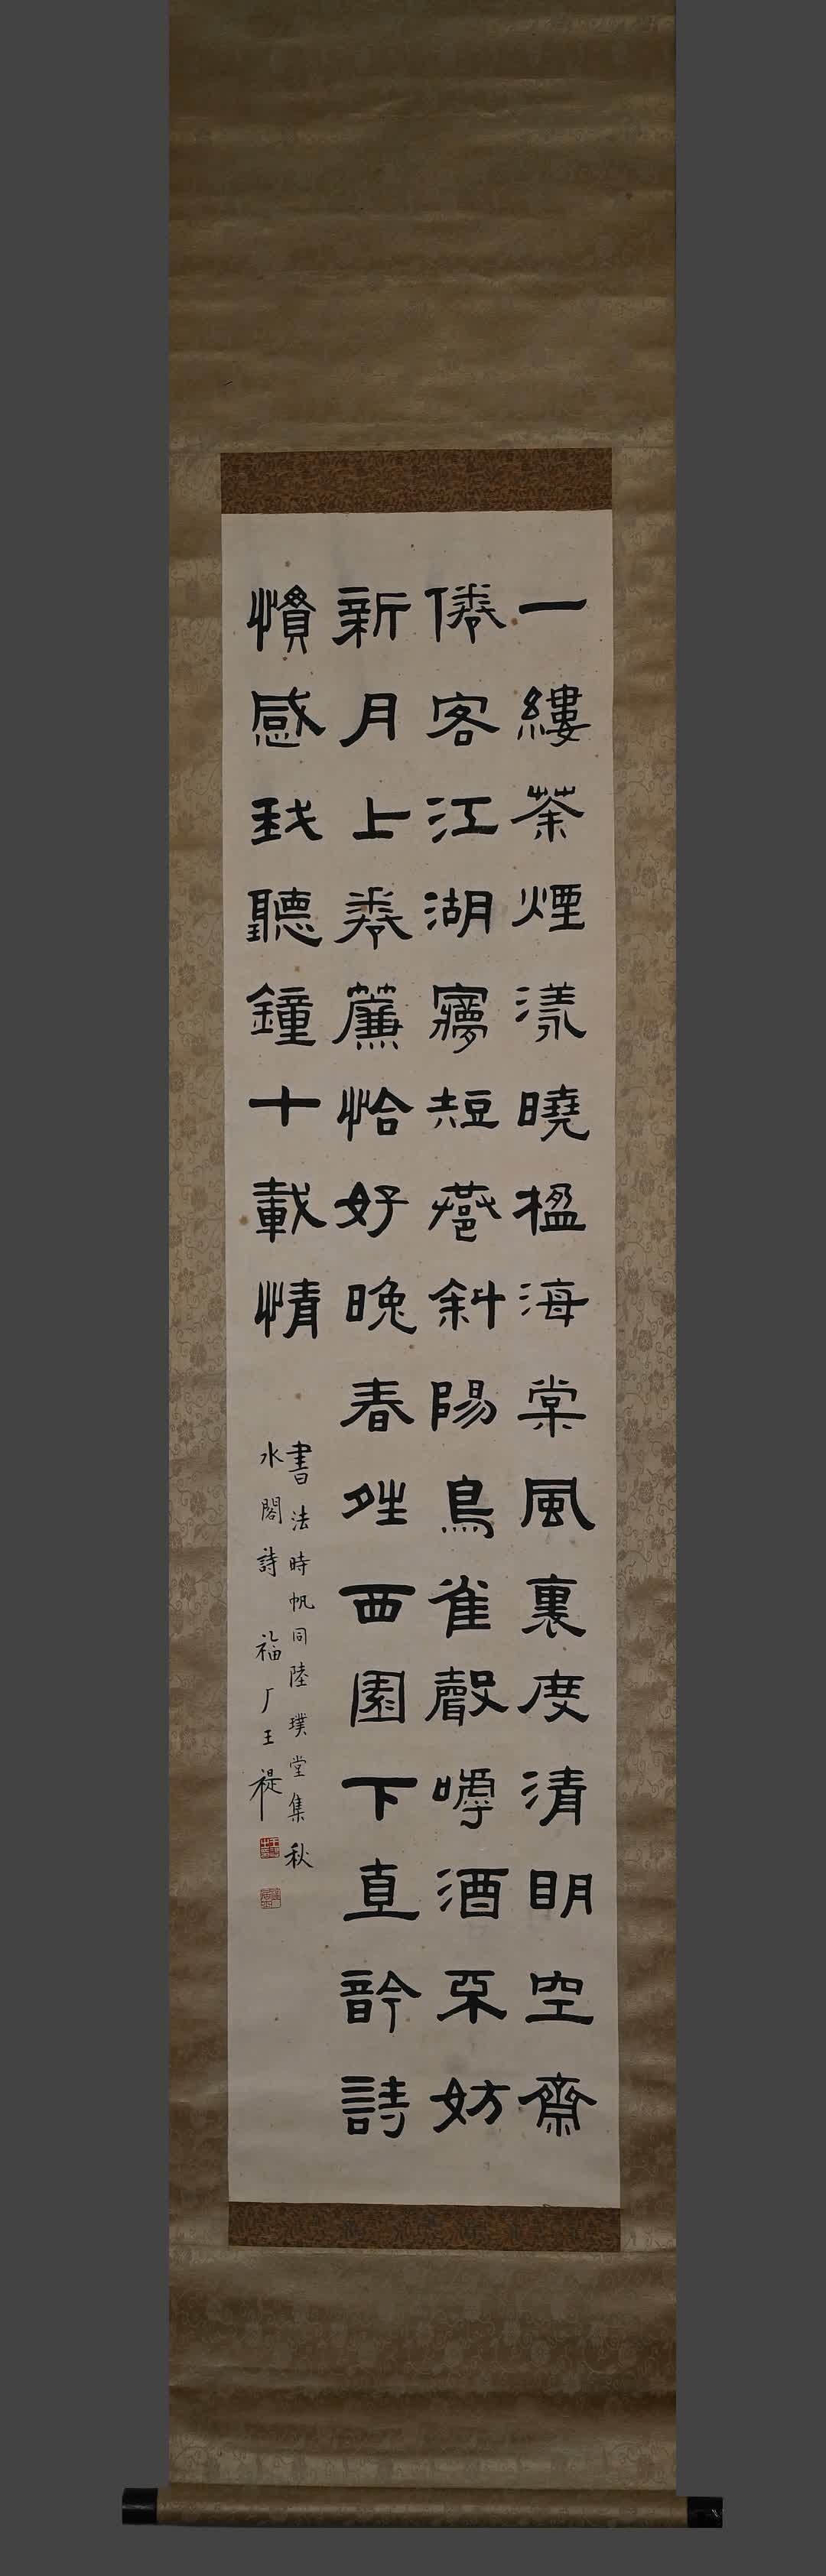 一縷茶煙漾曉楹海棠風裏度清眀空齋
倦客江湖㝱短巷斜陽鳥雀聲嘑酒不妨
新月上卷簾恰好晚春夝西園下直䪩詩
慣感我聽鐘十載情
書法時帆同陸璞堂集秋
水閣詩 福厂王禔